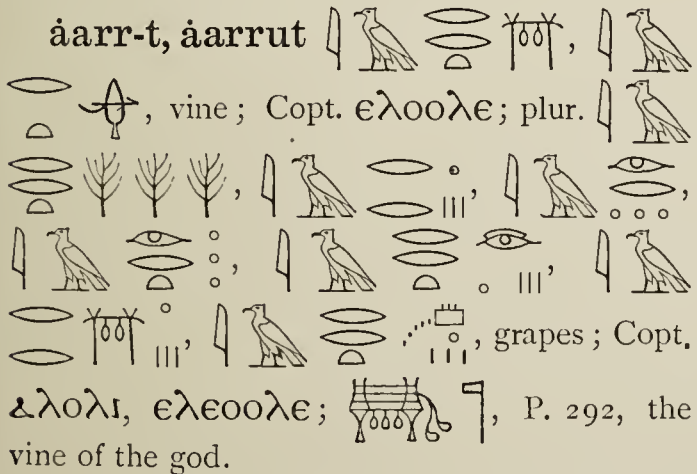 ȧarr-t, ȧarrut 𓇋𓄿𓂋𓂋𓏏𓇭, 𓇋𓄿
𓂋𓏏, vine ; Copt. ⲉⲗⲟⲟⲗⲉ; plur. 𓇋𓄿
𓂋𓂋𓏏, 𓇋𓄿𓂋𓂋𓈒𓏥, 𓇋𓄿𓁹𓂋𓈒𓈒𓈒,
𓇋𓄿𓁹𓂋𓏏𓈒𓈒𓈒, 𓇋𓄿𓂋𓂋𓏏𓈒𓏥, 𓇋𓄿
𓂋𓂋𓇭𓈒𓏥, 𓇋𓄿𓂋𓂋𓏏, grapes ; Copt.
ⲁⲗⲟⲗⲓ, ⲉⲗⲉⲟⲟⲗⲉ; 𓊹, P. 292, the
vine of the god.